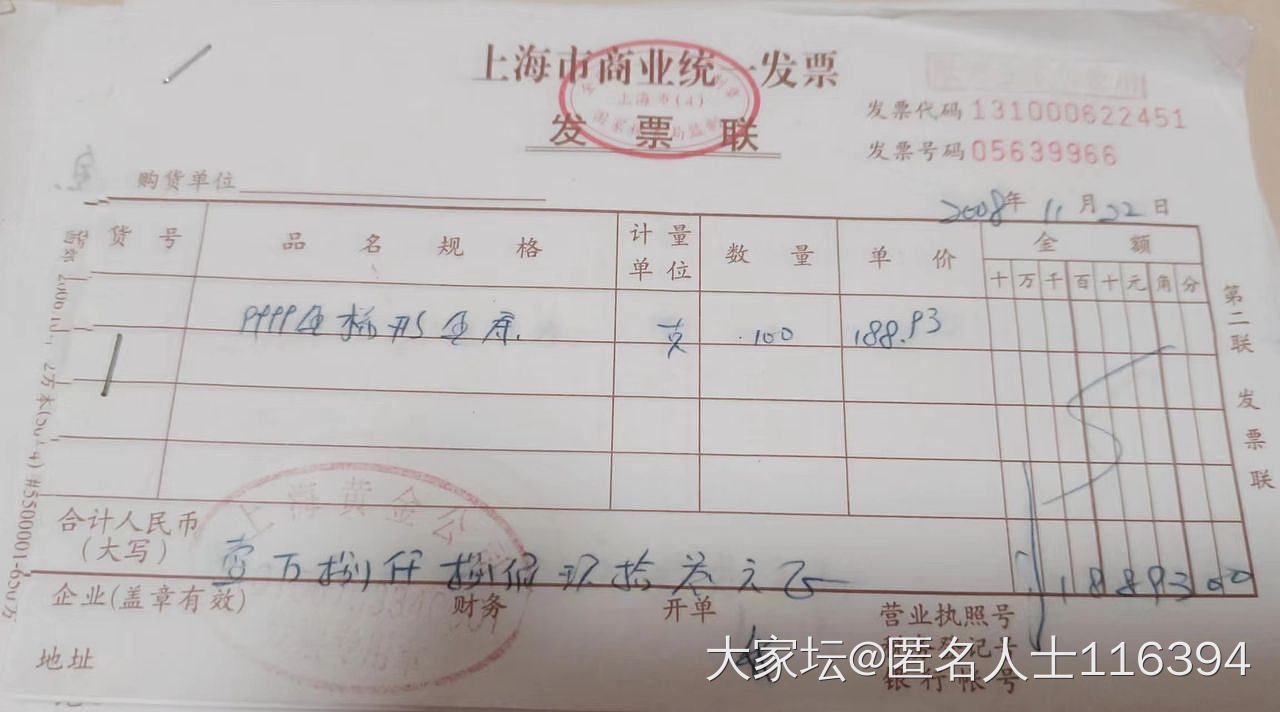 上海市商业统一发票
发票联
上海市(4)
发票代码 131000622451
发票号码 05639966
购货单位
2008年 11月22日
货号 品名规格 计量单位 数量 单价 金额
十 万 千 百 十 元 角 分
9999金梯形金 克 100 188.93
第二联 发票联
上海黄金公
合计人民币(大写) 壹万捌仟捌佰玖拾叁元正
¥1889300
企业(盖章有效) 财务 开单 营业执照号
地址
银行帐号
大家坛@匿名人士116394